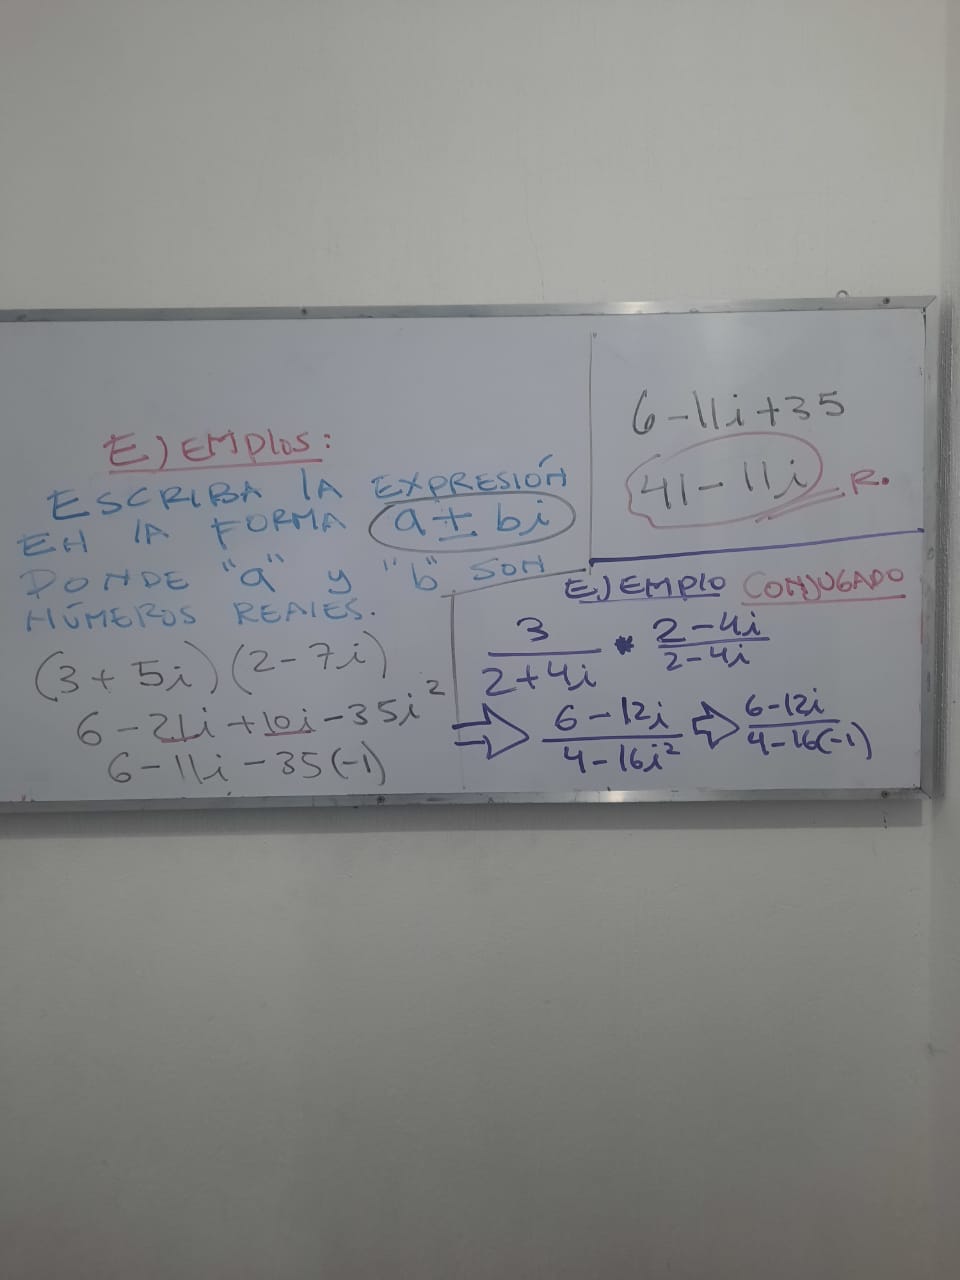 EJEMPLOS:
ESCRIBA LA EXPRESIÓN
EN LA FORMA a ± bi
DONDE "a" y "b" SON
NÚMEROS REALES.
(3 + 5i)(2 - 7i)
6 - 21i + 10i - 35i²
6 - 11i - 35(-1)
6 - 11i + 35
41 - 11i R.
EJEMPLO CONJUGADO
3/(2+4i) * (2-4i)/(2-4i)
⇒ (6-12i)/(4-16i²) ⇒ (6-12i)/(4-16(-1))